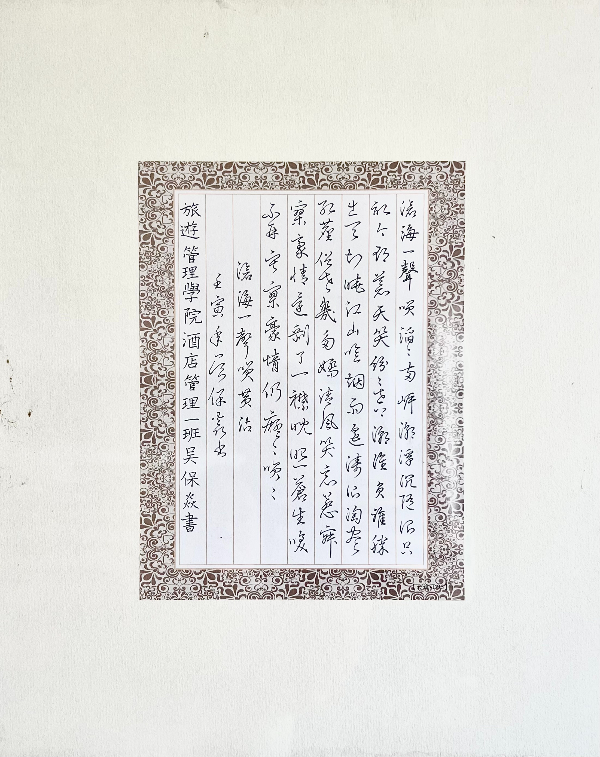 滄海一聲咲滔〻兩岸潮浮沉隨浪只
記今朝蒼天笑紛〻世上潮誰負誰勝
出天知曉江山咲烟雨遙濤浪淘盡
紅塵俗世幾多嬌清風笑竟惹寂
寥豪情還剩了一襟晚照蒼生咲
不再寂寥豪情仍癡〻咲〻
滄海一聲咲黄霑
壬寅年吴保焱书
旅遊管理學院酒店管理一班吴保焱書